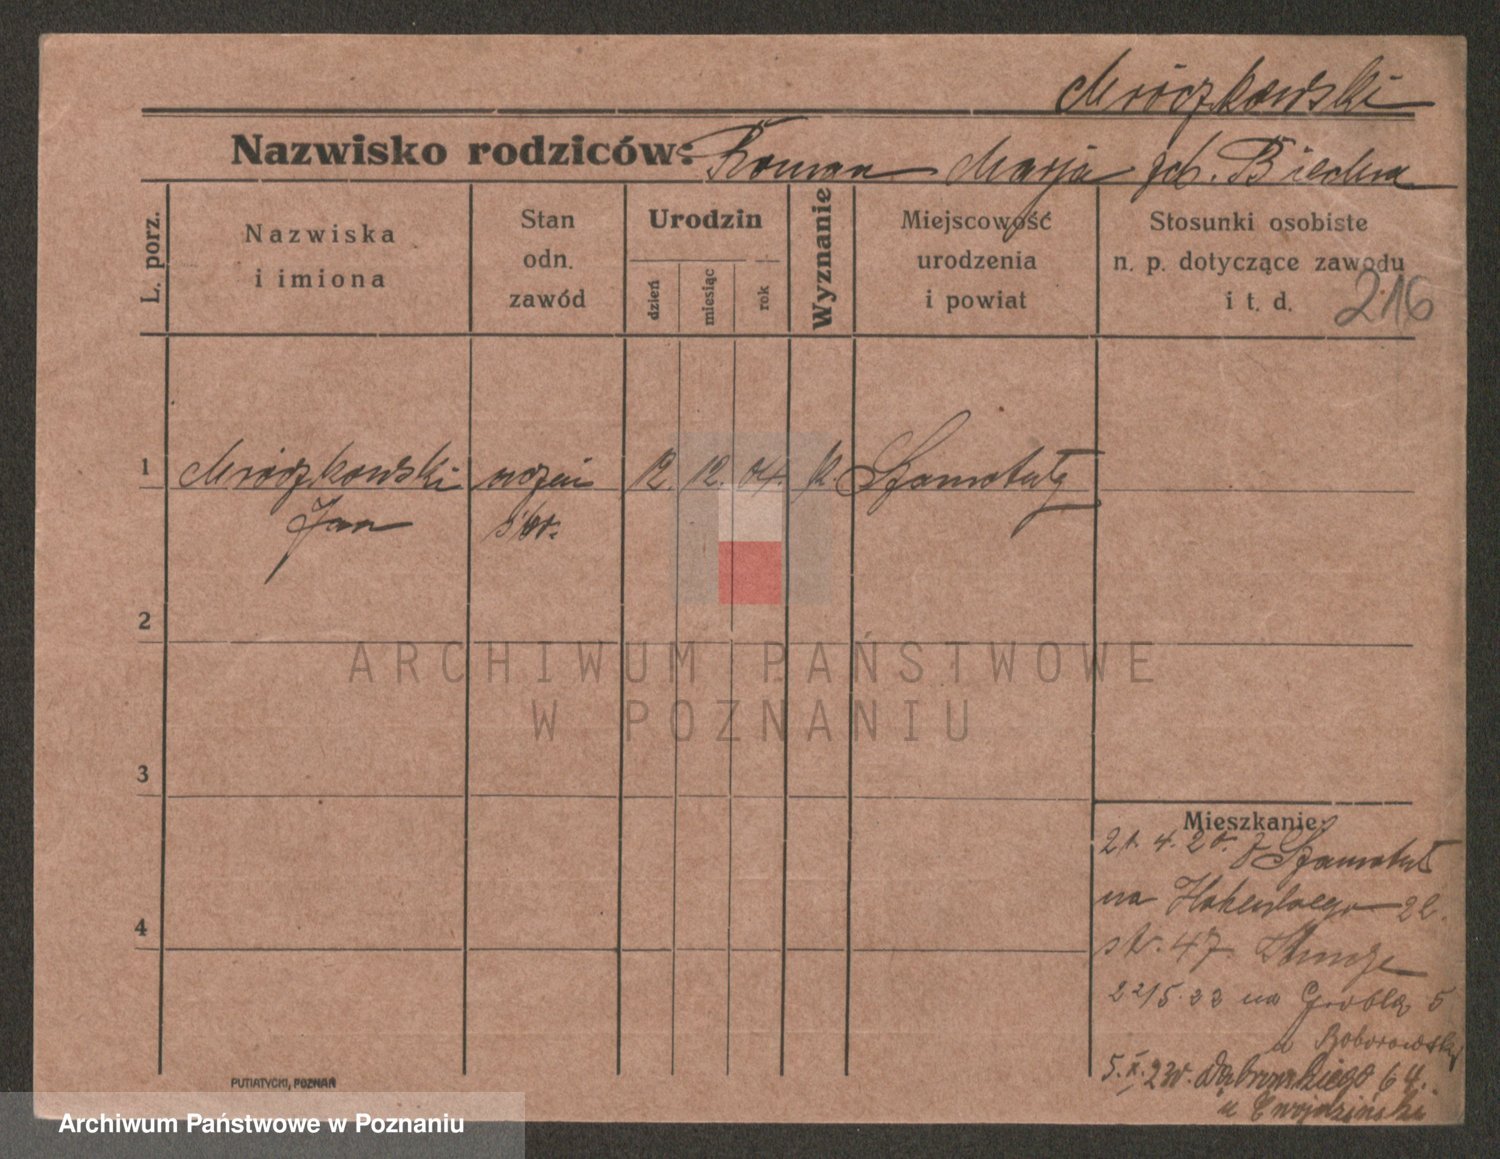 Mroczkowski
Nazwisko rodziców: Roman Marja geb.
L. porz.
Nazwiska
i imiona
Stan
odn.
zawód
Urodzin
dzień
miesiąc
rok
Wyznanie
Miejscowość
urodzenia
i powiat
Stosunki osobiste
n. p. dotyczące zawodu
i t. d.
216
1 Mroczkowski uczeń 12. 12. 04. k. Szamotuły
Jan
2
3
4
Mieszkanie:
21. 4. 20. z Szamotuł
na 22.
47.
22/5. 22 na Grobla 5
u Boborowski
5. X. 23 Dąbrowskiego 64.
u
PUTIATYCKI, POZNAŃ
ARCHIWUM PAŃSTWOWE
W POZNANIU
Archiwum Państwowe w Poznaniu